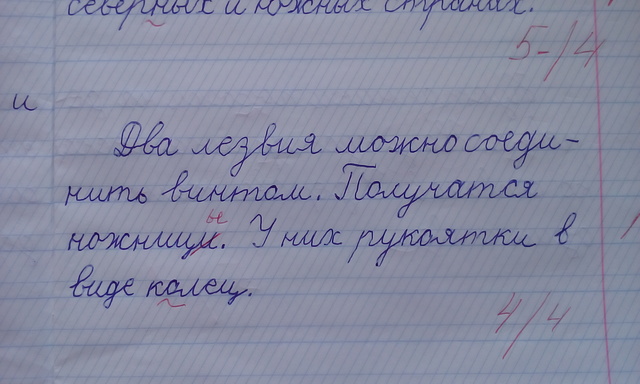 северных и южных странах.
5-/4
и
Два лезвия можно соеди-
нить винтом. Получатся
ножници. У них рукоятки в
ы
виде колец.
4/4